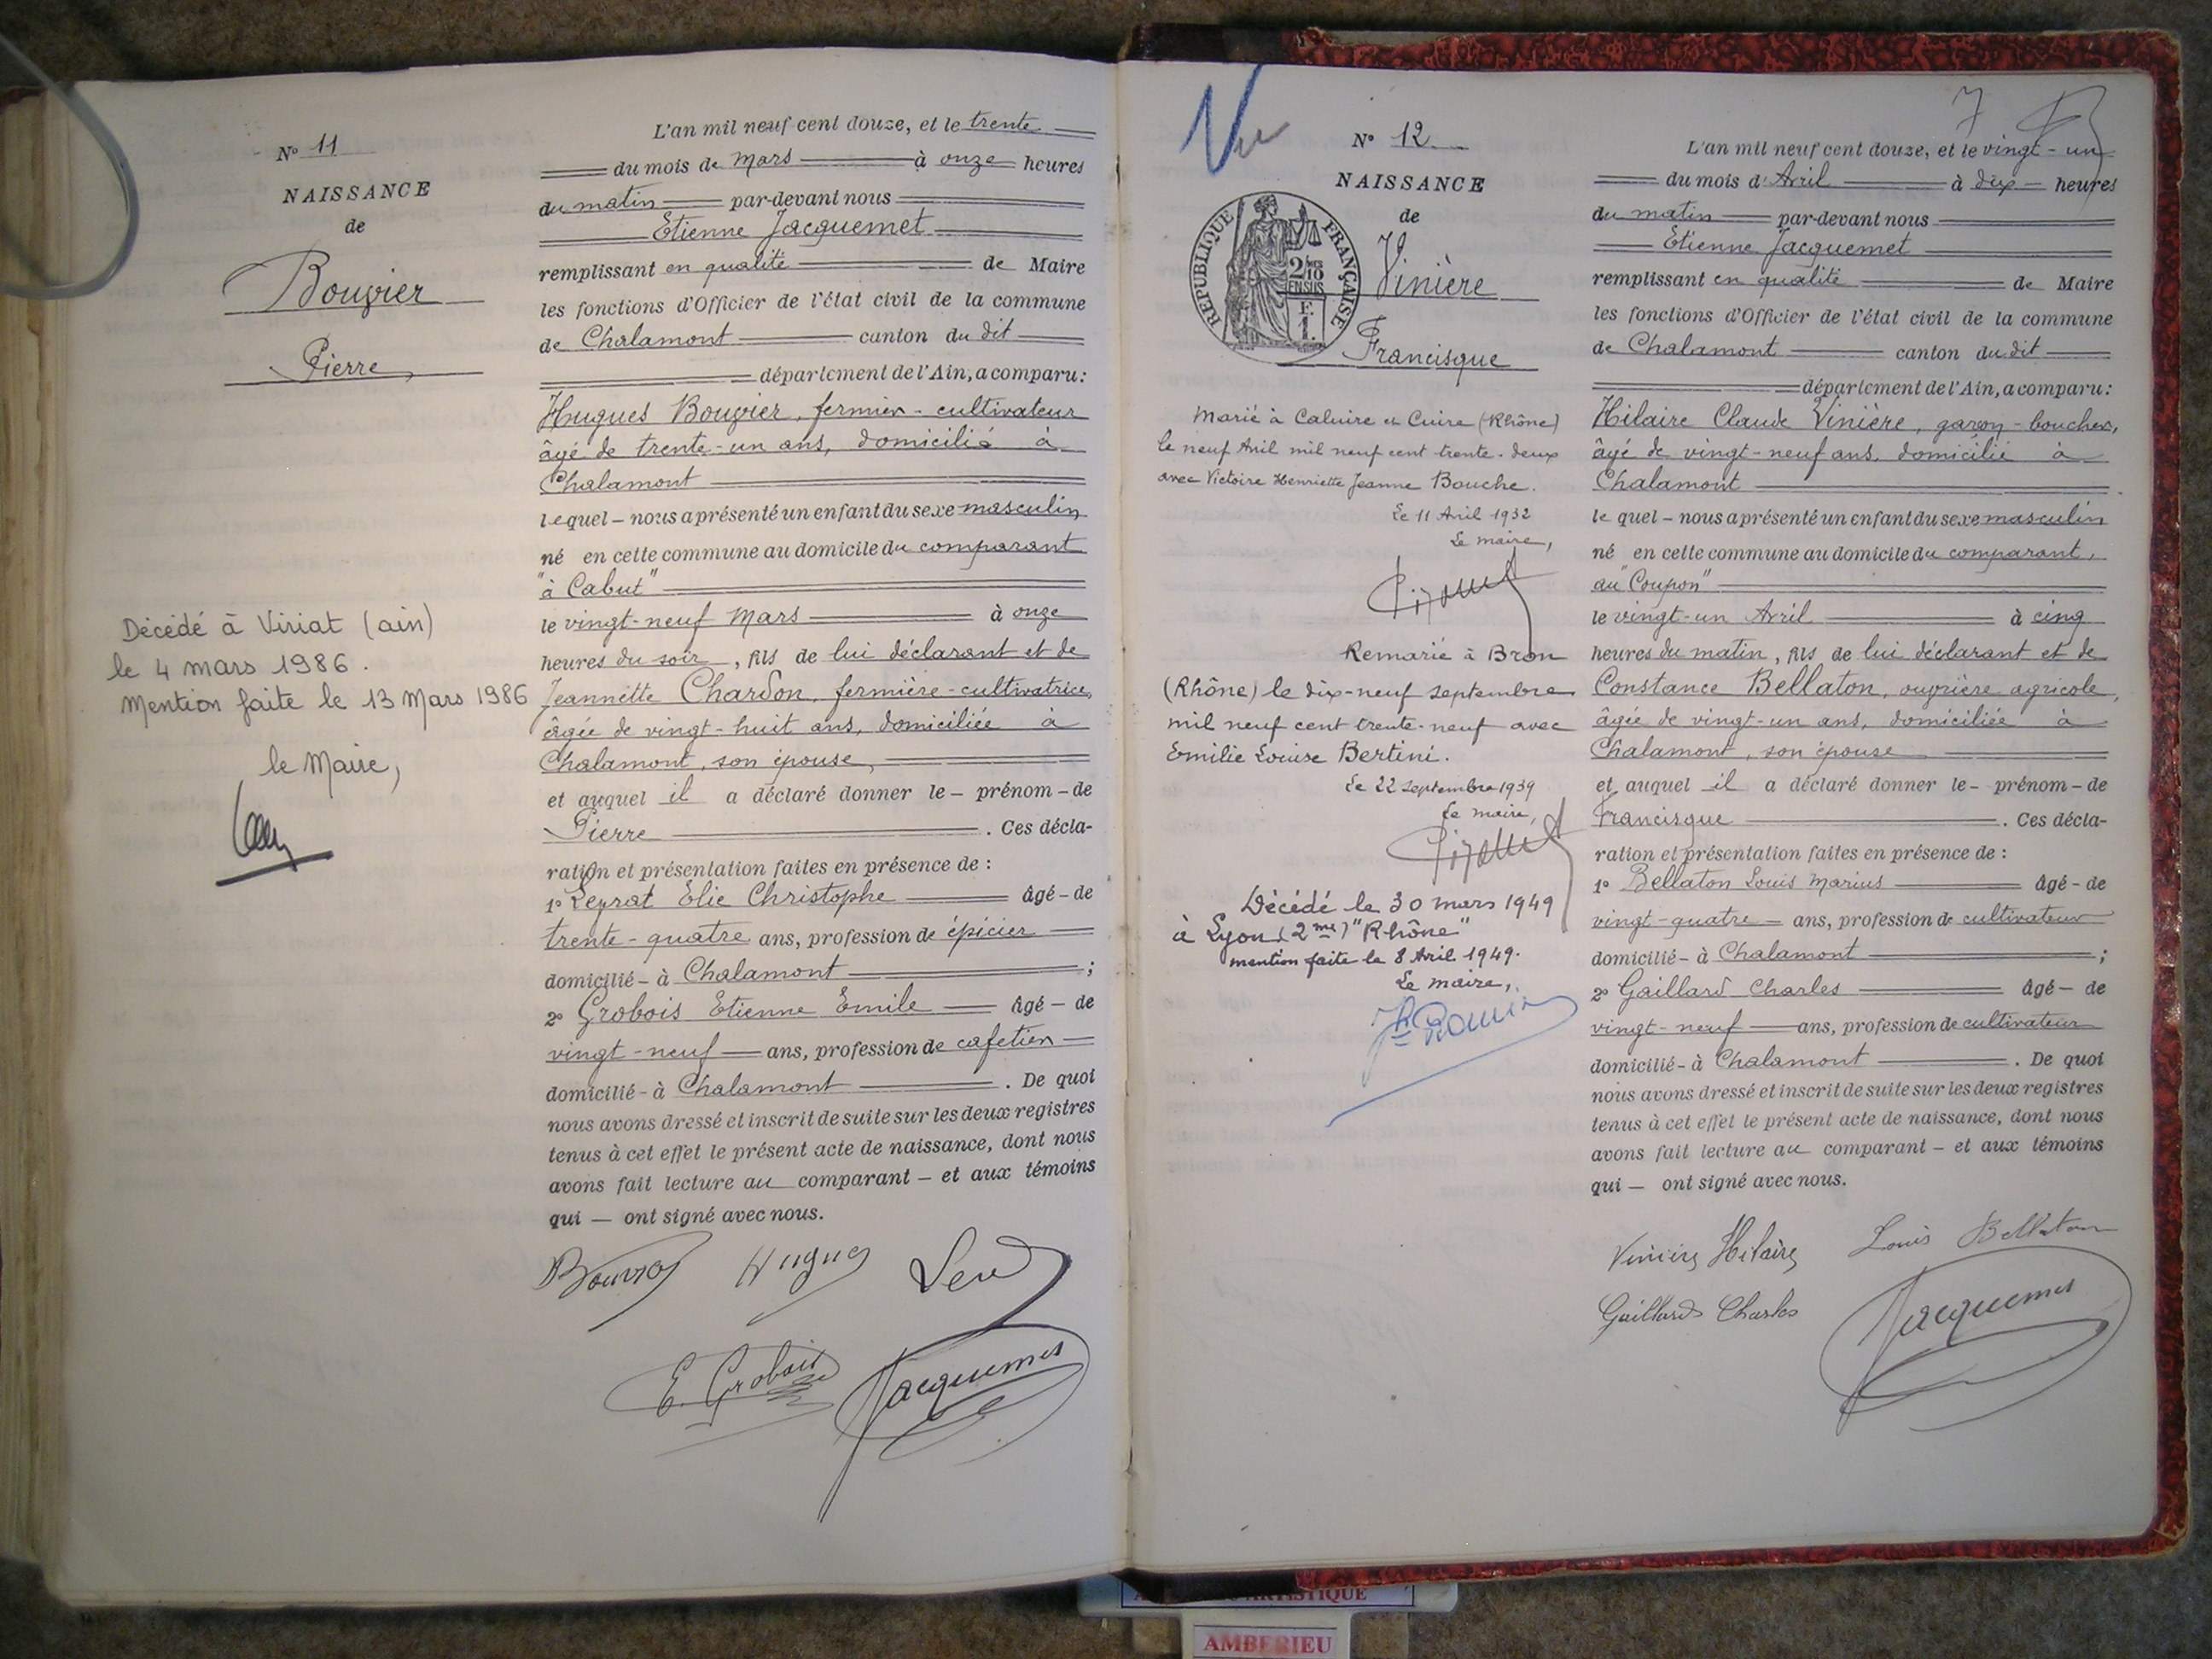 N° 11
NAISSANCE
de
Bouvier
Pierre
Décédé à Viriat (ain)
le 4 mars 1986.
Mention faite le 13 Mars 1986
le Maire,
L'an mil neuf cent douze, et le trente
du mois de Mars à onze heures
du matin par-devant nous
Etienne Jacquemet
remplissant en qualité de Maire
les fonctions d'Officier de l'état civil de la commune
de Chalamont canton du dit
département de l'Ain, a comparu:
Hugues Bouvier, fermier-cultivateur
âgé de trente-un ans, domicilié à
Chalamont
lequel – nous a présenté un enfant du sexe masculin
né en cette commune au domicile du comparant
"à Cabut"
le vingt-neuf Mars à onze
heures du soir, fils de lui déclarant et de
Jeannette Chardon, fermière-cultivatrice,
âgée de vingt-huit ans, domiciliée à
Chalamont, son épouse,
et auquel il a déclaré donner le – prénom – de
Pierre. Ces décla-
ration et présentation faites en présence de :
1° Leyrat Elie Christophe âgé – de
trente-quatre ans, profession de épicier
domicilié – à Chalamont ;
2° Grobois Etienne Emile âgé – de
vingt-neuf ans, profession de cafetier
domicilié – à Chalamont. De quoi
nous avons dressé et inscrit de suite sur les deux registres
tenus à cet effet le présent acte de naissance, dont nous
avons fait lecture au comparant – et aux témoins
qui – ont signé avec nous.
Hugues
E. Grobois Jacquemet
Vu
N° 12
NAISSANCE
de
REPUBLIQUE FRANÇAISE
2/10
EN SUS
F.
1.
Vinière
Francisque
Marié à Caluire et Cuire (Rhône)
le neuf Avril mil neuf cent trente-deux
avec Victoire Henriette Jeanne Bouche.
Le 11 Avril 1932
Le maire,
Remarié à Bron
(Rhône) le dix-neuf septembre
mil neuf cent trente-neuf avec
Emilie Louise Bertini.
Le 22 septembre 1939
Le maire,
Décédé le 30 mars 1949
à Lyon (2me) "Rhône"
mention faite le 8 Avril 1949.
Le maire,
7
L'an mil neuf cent douze, et le vingt-un
du mois d'Avril à dix heures
du matin par-devant nous
Etienne Jacquemet
remplissant en qualité de Maire
les fonctions d'Officier de l'état civil de la commune
de Chalamont canton du dit
département de l'Ain, a comparu:
Hilaire Claude Vinière, garçon-boucher,
âgé de vingt-neuf ans, domicilié à
Chalamont
lequel – nous a présenté un enfant du sexe masculin
né en cette commune au domicile du comparant,
au "Coupon"
le vingt-un Avril à cinq
heures du matin, fils de lui déclarant et de
Constance Bellaton, ouvrière agricole,
âgée de vingt-un ans, domiciliée à
Chalamont, son épouse
et auquel il a déclaré donner le – prénom – de
Francisque. Ces décla-
ration et présentation faites en présence de :
1° Bellaton Louis Marius âgé – de
vingt-quatre ans, profession de cultivateur
domicilié – à Chalamont ;
2° Gaillard Charles âgé – de
vingt-neuf ans, profession de cultivateur
domicilié – à Chalamont. De quoi
nous avons dressé et inscrit de suite sur les deux registres
tenus à cet effet le présent acte de naissance, dont nous
avons fait lecture au comparant – et aux témoins
qui – ont signé avec nous.
Vinière Hilaire Louis Bellaton
Gaillard Charles Jacquemet
ARTISTIQUE
AMBERIEU